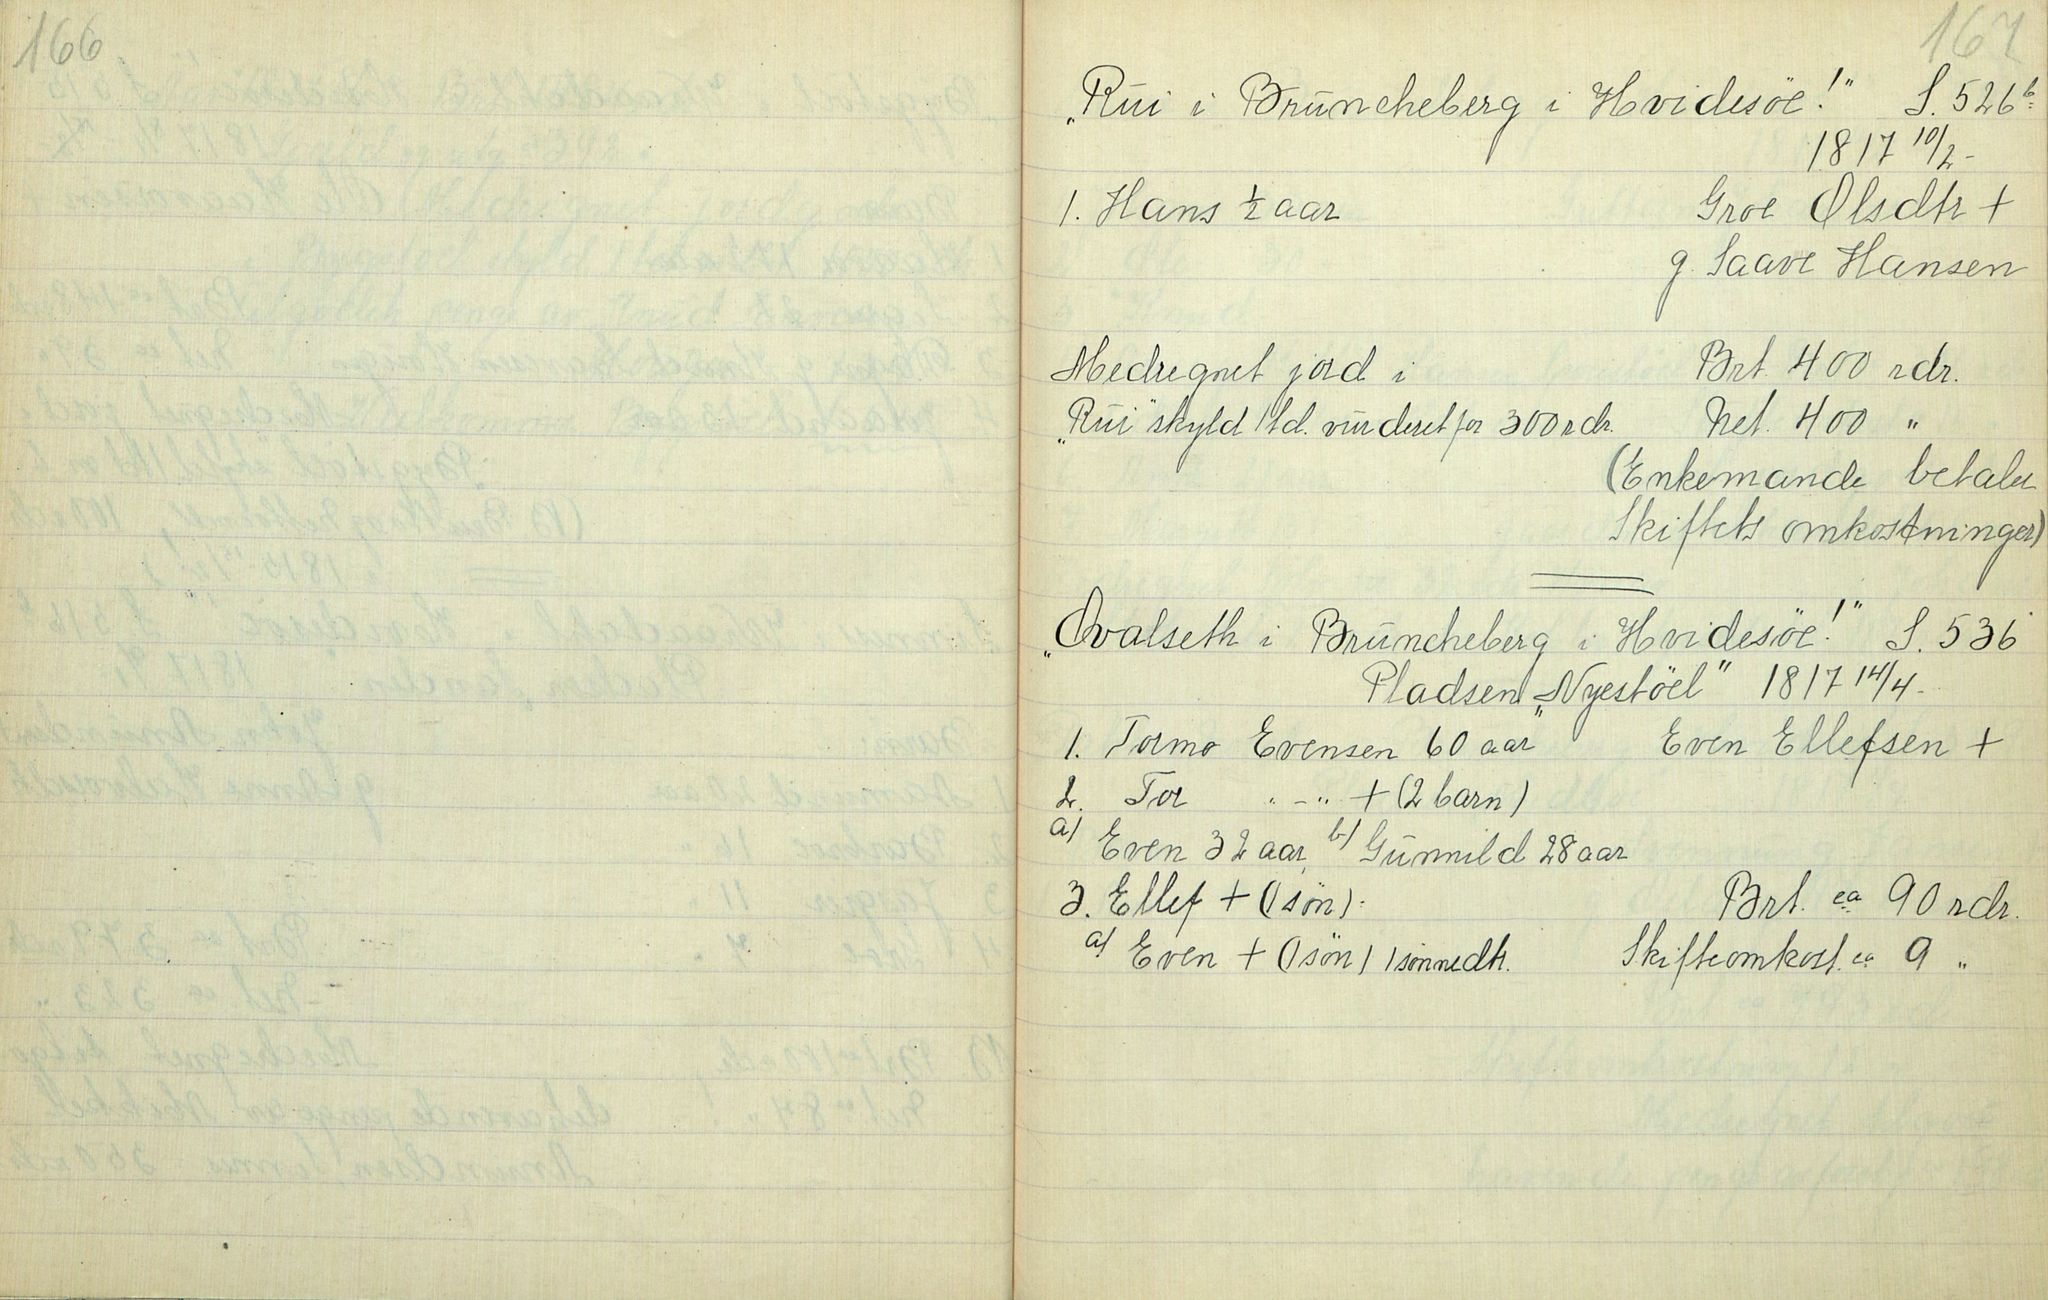 166
167
„Rui i Bruncheberg i Hvidesöe!" S. 526 b
1817 10/2-
1. Hans ½ aar Groe Olsdtr +
g. Saave Hansen
Medregnet jord i Brt. 400 rdr.
„Rui" skyld 1 td. vurderet for 300 rdr. Net. 400 "
(Enkemande betaler
Skiftets omkostninger)
„Qvalseth i Bruncheberg i Hvidesöe!" S. 536
Pladsen „Nyestöel" 1817 14/4-
1. Tormo Evensen 60 aar Even Ellefsen +
2. Tor " - " + (2 barn)
a) Even 32 aar, b) Gunnild 28 aar
3. Ellef + (1 sön): Brt. ca 90 rdr.
a) Even + (1 sön) 1 sönnedtr. Skifteomkost. ca 9 "